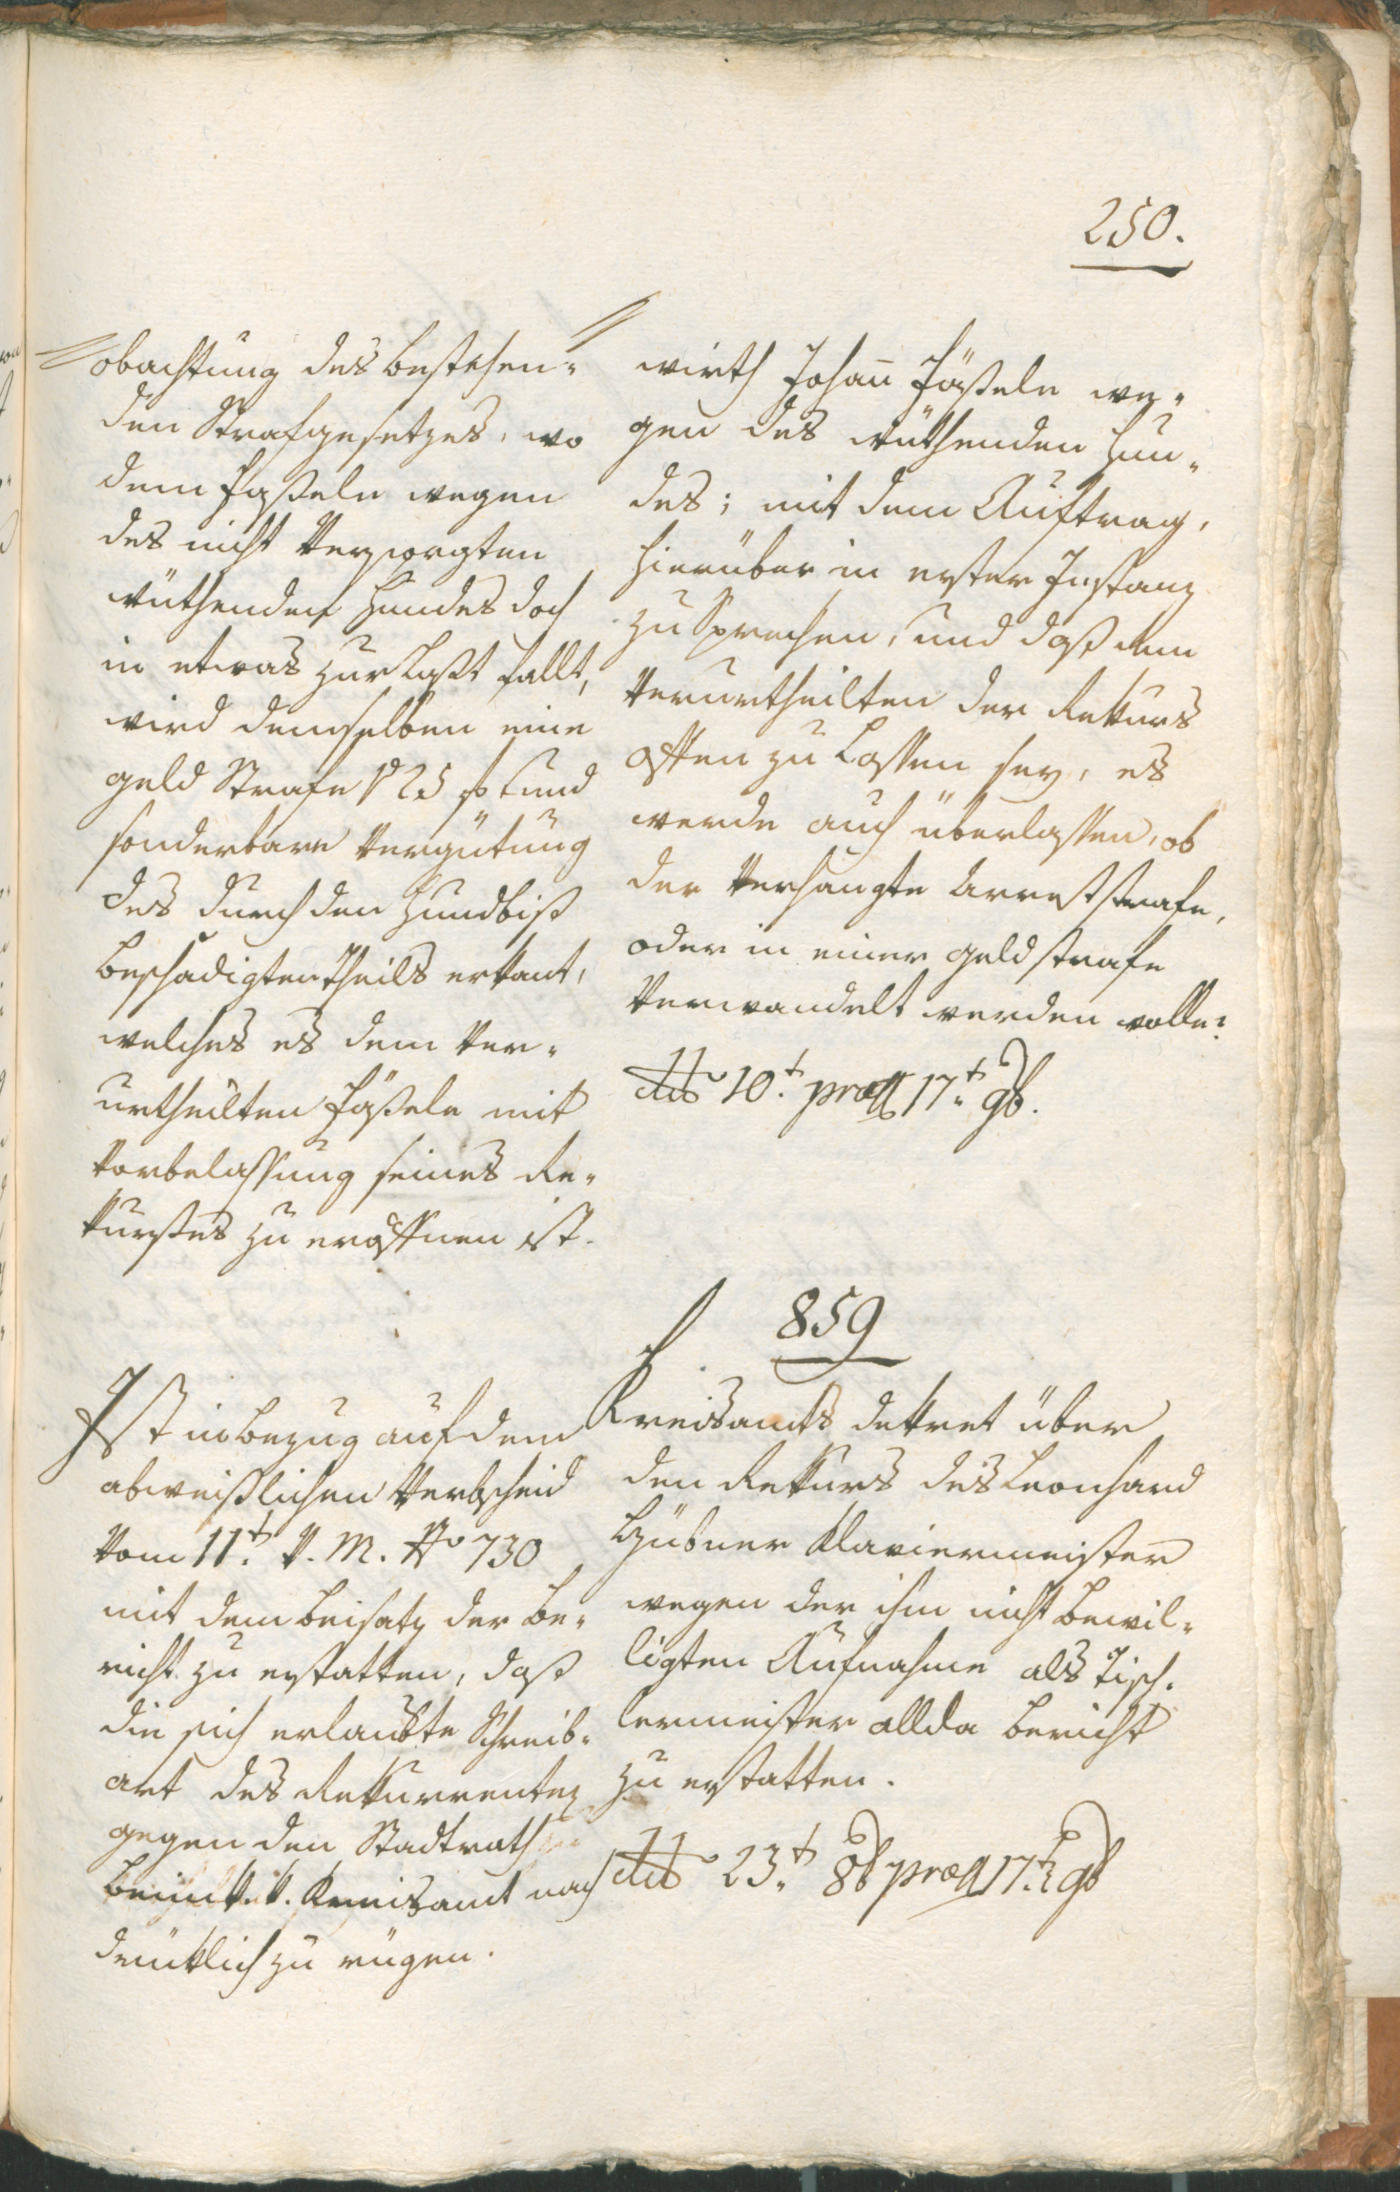 250.
obachtung des bestehen-
den Strafgesetzes, wo
dem Fäßele wegen
des nicht Versorgten
wüthenden Hundes doch
in etwas zur Last fallt,
wird demselben eine
geld Strafe p 25 f und
sonderbare Vergütung
des durch den Hundbiß
beschädigten Theils erkant,
welches es dem Ver-
urtheilten Fäßele mit
Vorbelassung seines Re-
kurses zu eröffnen ist.
wirth Johan Fäßele we-
gen des wüthenden Hun-
des; mit dem Auftrag,
hierüber in erster Instanz
zu Sprechen, und daß dem
Verurtheilten der Rekurs
offen zu Lassen sey, es
werde auch überlassen, ob
der Verhängte Arreststrafe,
oder in einer geldstrafe
Verwandelt werden wolle?
dto 10t præs 17t 9b.
859
Ist in bezug auf dem
abweißlichen Verbscheid
Vom 11t V. M. No 730
mit dem beisatz der Be-
richt zu erstatten, daß
die sich erlaubte Schreib-
art des Rekurrenten
gegen den Stadtrath
beim k. k. Kreisamt nach
drücklich zu rügen.
Kreisamts dekret über
den Rekurs des Leonhard
Hübner Klaviermeister
wegen der ihm nicht bewil-
ligten Aufnahme als Tisch-
lermeister allda bericht
zu erstatten.
dto 23t 8b præs 17t 9b